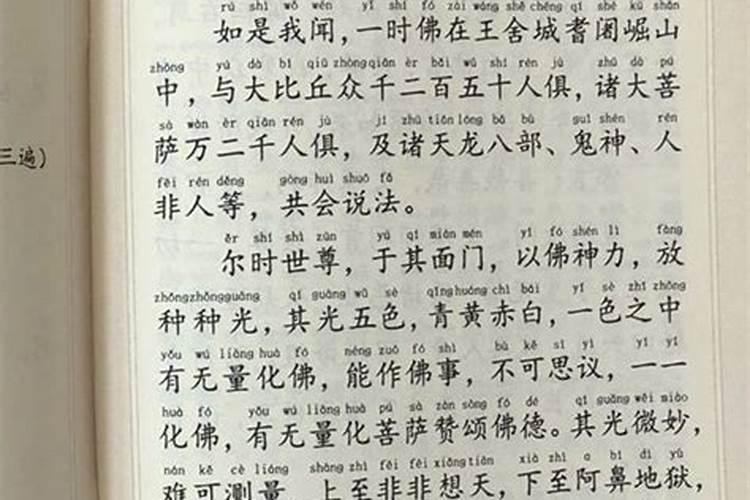 三遍)
rú shì wǒ wén yī shí fó zài wáng shě chéng qí shé kū shān
如是我闻，一时佛在王舍城耆阇崛山
zhōng yǔ dà bǐ qiū zhòng qiān èr bǎi wǔ shí rén jù zhū dà pú
中，与大比丘众千二百五十人俱，诸大菩
sà wàn èr qiān rén jù jí zhū tiān lóng bā bù guǐ shén rén
萨万二千人俱，及诸天龙八部、鬼神、人
fēi rén děng gòng huì shuō fǎ
非人等，共会说法。
ěr shí shì zūn yú qí miàn mén yǐ fó shén lì fàng
尔时世尊，于其面门，以佛神力，放
zhǒng zhǒng guāng qí guāng wǔ sè qīng huáng chì bái yī sè zhī zhōng
种种光，其光五色，青黄赤白，一色之中
yǒu wú liàng huà fó néng zuò fó shì bù kě sī yì yī yī
有无量化佛，能作佛事，不可思议，一一
huà fó yǒu wú liàng huà pú sà zàn sòng fó dé qí guāng wēi miào
化佛，有无量化菩萨赞颂佛德。其光微妙，
nán kě cè liáng shàng zhì fēi fēi xiǎng tiān xià zhì ā bí dì yù
难可测量，上至非非想天，下至阿鼻地狱，